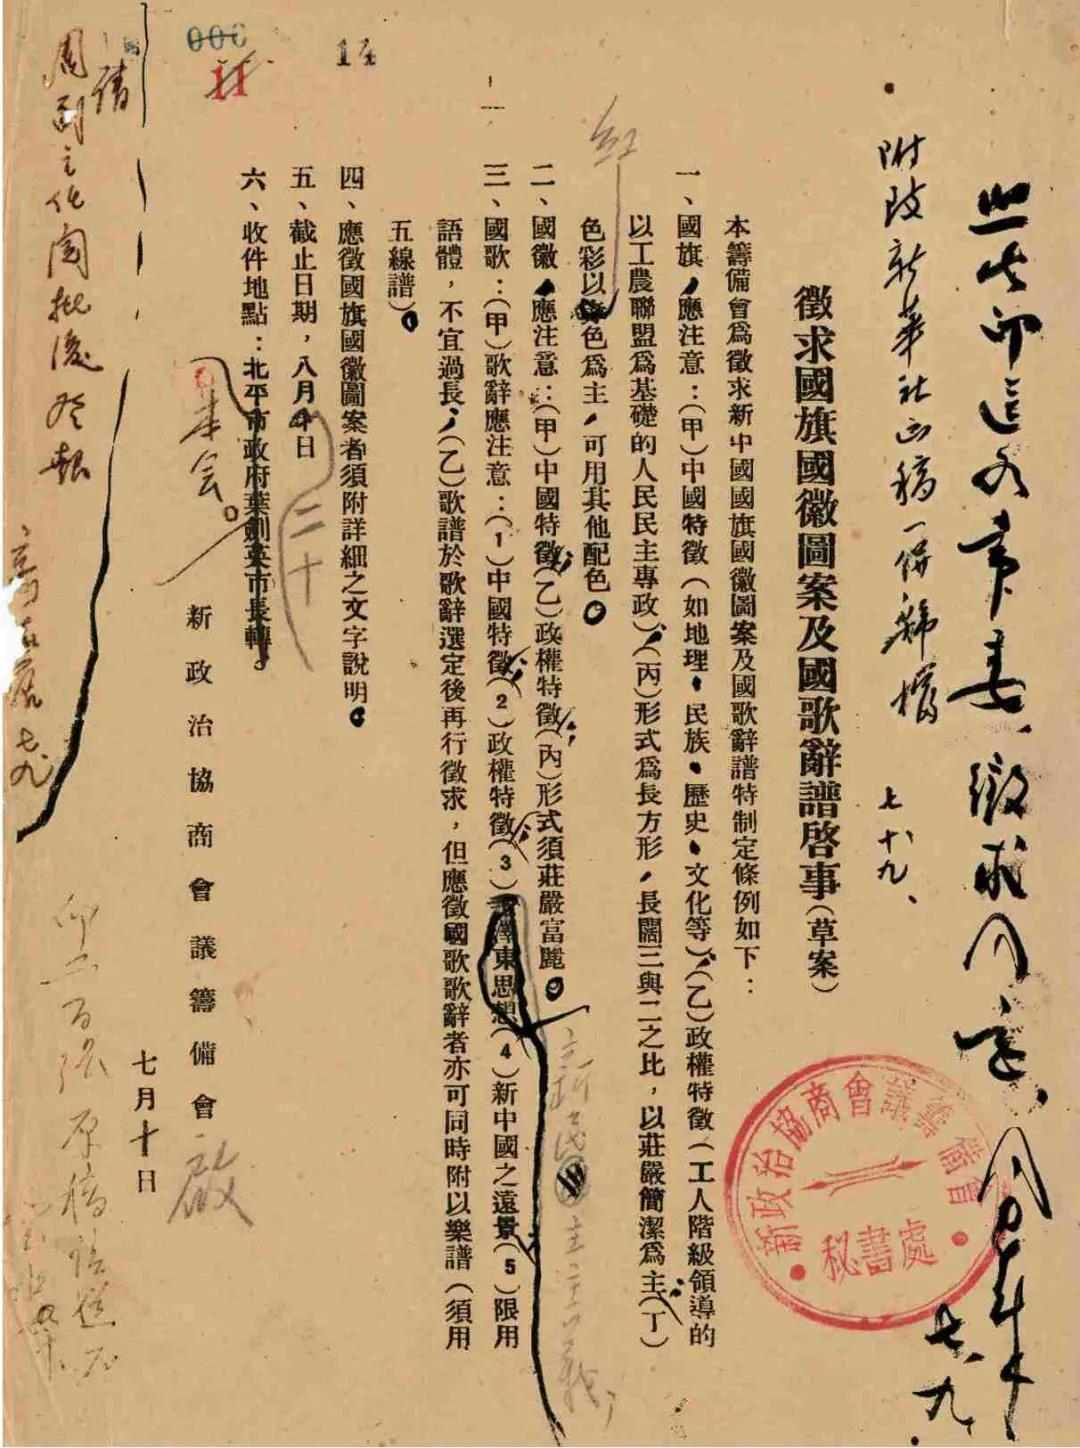 附改新華社函稿一併歸檔
七、十九、
徵求國旗國徽圖案及國歌辭譜啓事(草案)
本籌備會爲徵求新中國國旗國徽圖案及國歌辭譜特制定條例如下:
一、國旗,應注意:(甲)中國特徵(如地理、民族、歷史、文化等);(乙)政權特徵(工人階級領導的
以工農聯盟爲基礎的人民民主專政);(丙)形式爲長方形,長闊三與二之比,以莊嚴簡潔爲主;(丁)
色彩以紅色爲主,可用其他配色。
二、國徽,應注意:(甲)中國特徵;(乙)政權特徵;(丙)形式須莊嚴富麗。
三、國歌:(甲)歌辭應注意:(1)中國特徵;(2)政權特徵;(3)毛澤東思想(4)新中國之遠景;(5)限用
新民主主義;
語體,不宜過長;(乙)歌譜於歌辭選定後再行徵求,但應徵國歌歌辭者亦可同時附以樂譜(須用
五線譜)。
四、應徵國旗國徽圖案者須附詳細之文字說明。
五、截止日期,八月 日
二十
六、收件地點:北平市政府葉劍英市長轉。
本会。
新政治協商會議籌備會啟
七月十日
新政治協商會議籌備會
秘書處
七、九
000
11
14
請
印二百張原稿